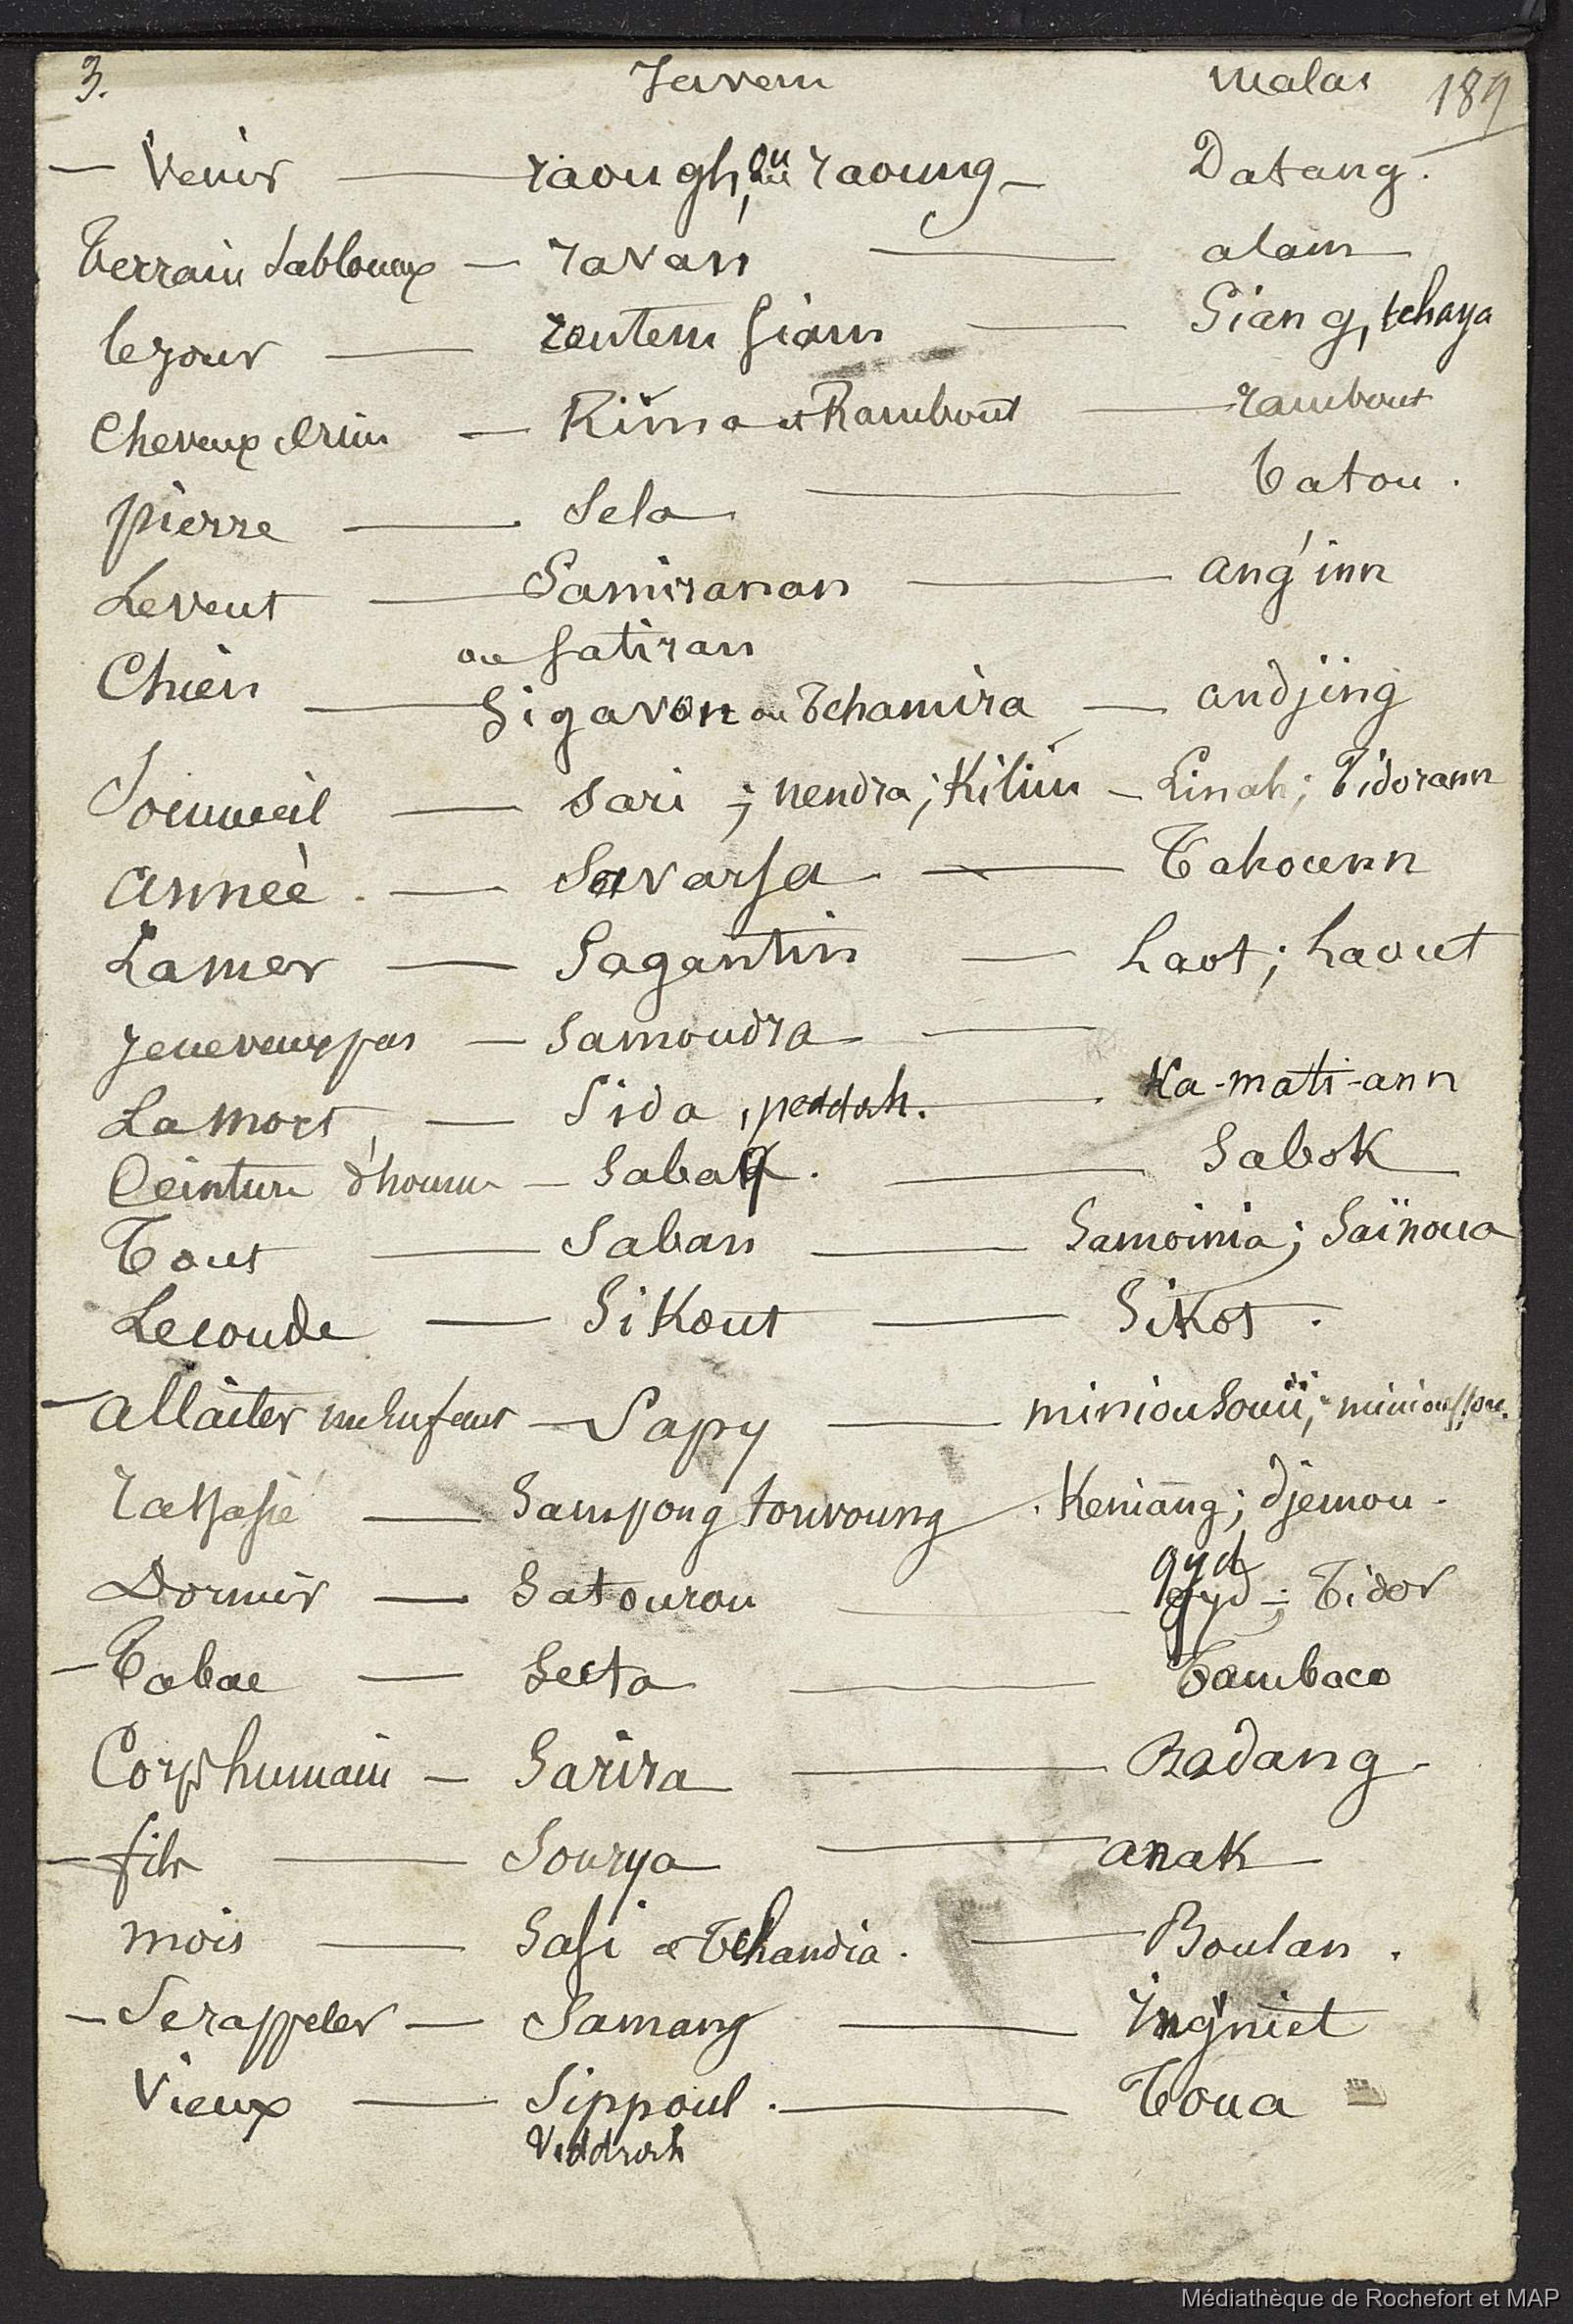 3. Javan malai 189
Venir raough, ou raoung Datang.
Terrain Sabloneux ravan alam
le jour rentem siam Siang, tchaya
Cheveux Crin Rima et Rambout rambout
pierre Sela batou.
Le vent Samiranan ang'inn
ou Satiran
Chien Sigavon ou Tchamira andjing
Sommeil sari ; nendra ; Kilim Linah ; Tidorann
année Savarsa Tahounn
La mer Sagantin Laot ; Laout
je ne veux pas Samoudra
La mort, Sida, peddah. Ka-mati-ann
Ceinture d'homme Sabak. Sabok
Tout Saban Samoinia ; Saïnoua
Le coude Sikout Sikot.
allaiter un Enfant Sapy miniousouii,
rassasié Sampong touvoung Keniang ; djemou.
gyd
Dormir Satourou Tidor
Tabac Secta Tambaco
Corps humain Sarira Badang
fils Sourya anak
mois Sasi & Tchandia. Boulan.
Se rappeler Samang Ing'niet
Vieux Sippoul. Toua
Viddroh
Médiathèque de Rochefort et MAP